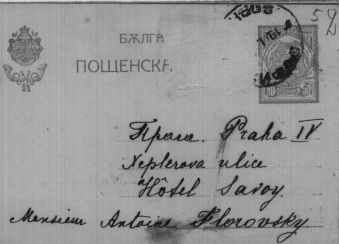 БЪЛГА
ПОЩЕНСКА
Прага. Praha IV
Keplerova ulice
Hôtel Savoy.
Monsieur Antoine Florovsky